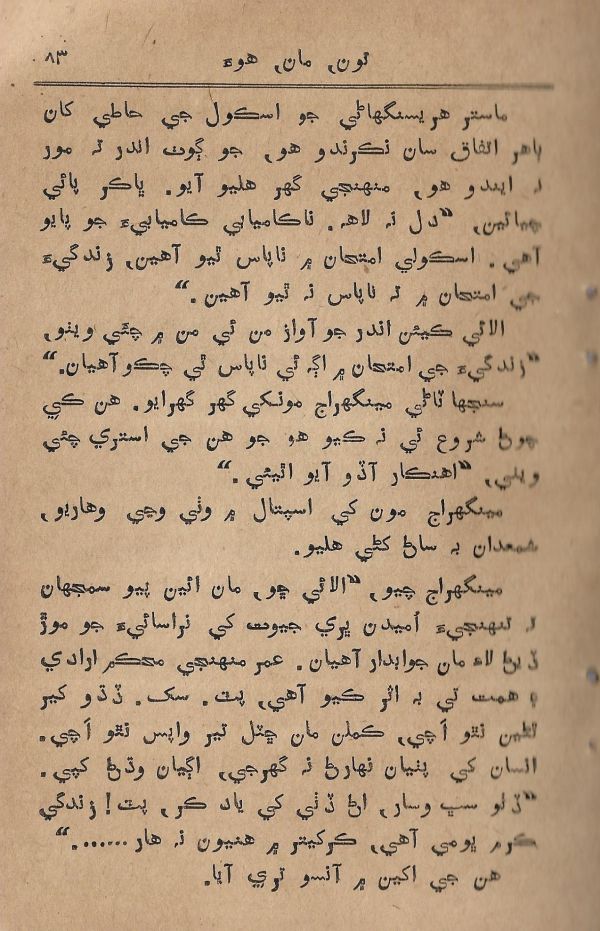 تون، مان، هوءَ ٨٣
ماستر هريسنگهاڻي جو اسڪول جي حاطي کان
ٻاهر اتفاق سان نڪرندو هو، جو ڳوٺ اندر نه مور
نه ايندو هو، منهنجي گهر هليو آيو. ڀاڪر پائي
چيائين، “دل نہ لاھ. ناڪاميابي ڪاميابيءَ جو پايو
آهي. اسڪولي امتحان ۾ ناپاس ٿيو آهين، زندگيءَ
جي امتحان ۾ تہ ناپاس نہ ٿيو آهين.“
الائي ڪيئن اندر جو آواز من ئي من ۾ چئي ويٺو،
“زندگيءَ جي امتحان ۾ اڳ ئي ناپاس ٿي چڪو آهيان.“
سنجها ٽاڻي مينگهراج مونکي گهر گهرايو. هن ڪي
چوڻ شروع ئي نہ ڪيو هو جو هن جي استري چئي
ويٺي، “اهنڪار آڏو آيو اٿيئي.“
مينگهراج مون کي اسپتال ۾ وٺي وڃي وهاريو،
شمعدان بہ ساڻ کڻي هليو.
مينگهراج چيو، “الائي ڇو، مان ائين پيو سمجهان
تہ تنهنجيءَ اُميدن ڀري جيوت کي نراسائيءَ جو موڙ
ڏيڻ لاءِ مان جوابدار آهيان. عمر منهنجي محڪم ارادي
۽ همت تي بہ اثر ڪيو آهي، پٽ. سک. ڏڌو کير
ٿڻين نٿو اَچي، ڪمان مان ڇٽل تير واپس نٿو اَچي.
انسان کي پٺيان نهارڻ نہ گهرجي، اڳيان وڌڻ کپي.
“ڏٺو سڀ وسار، اڻ ڏٺي کي ياد ڪر، پٽ! زندگي
ڪرم ڀومي آهي، ڪرڪيٽر ۾ هنيون نہ هار.......“
هن جي اکين ۾ آنسو تري آيا.